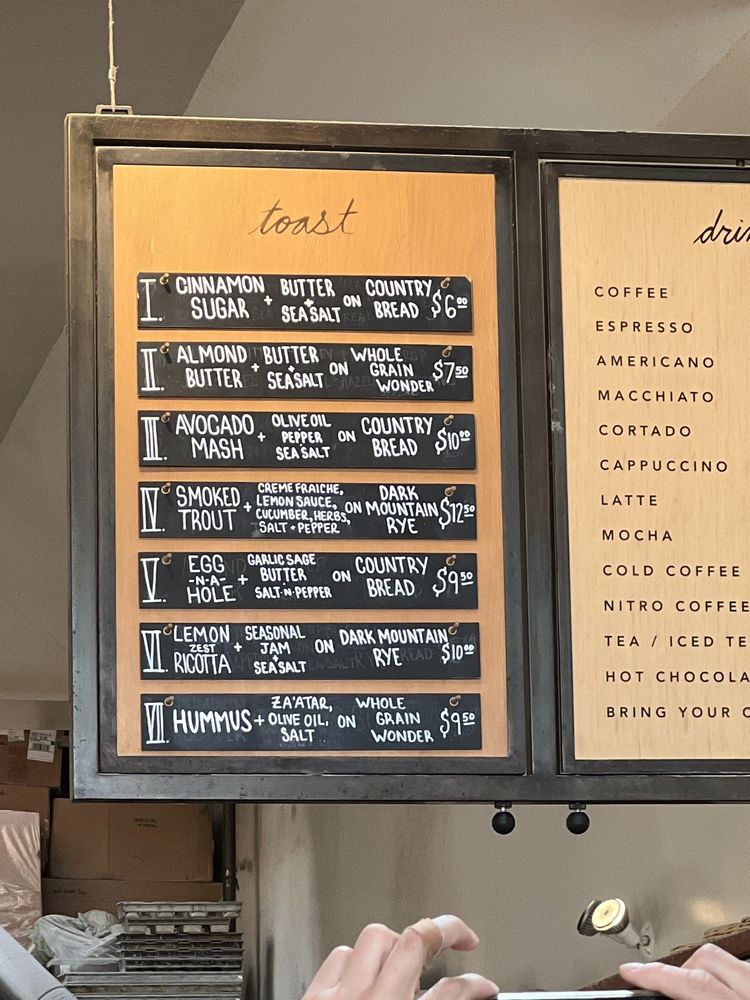 toast
I. CINNAMON SUGAR + BUTTER + SEA SALT ON COUNTRY BREAD $6.00
II. ALMOND BUTTER + BUTTER + SEA SALT ON WHOLE GRAIN WONDER $7.50
III. AVOCADO MASH + OLIVE OIL PEPPER SEA SALT ON COUNTRY BREAD $10.00
IV. SMOKED TROUT + CREME FRAICHE, LEMON SAUCE, CUCUMBER, HERBS, SALT + PEPPER ON DARK MOUNTAIN RYE $12.50
V. EGG -N-A- HOLE + GARLIC SAGE BUTTER SALT-N-PEPPER ON COUNTRY BREAD $9.50
VI. LEMON ZEST RICOTTA + SEASONAL JAM + SEA SALT ON DARK MOUNTAIN RYE $10.00
VII. HUMMUS + ZA'ATAR, OLIVE OIL, SALT ON WHOLE GRAIN WONDER $9.50
COFFEE
ESPRESSO
AMERICANO
MACCHIATO
CORTADO
CAPPUCCINO
LATTE
MOCHA
COLD COFFEE
NITRO COFFEE
TEA / ICED TE
HOT CHOCOLA
BRING YOUR